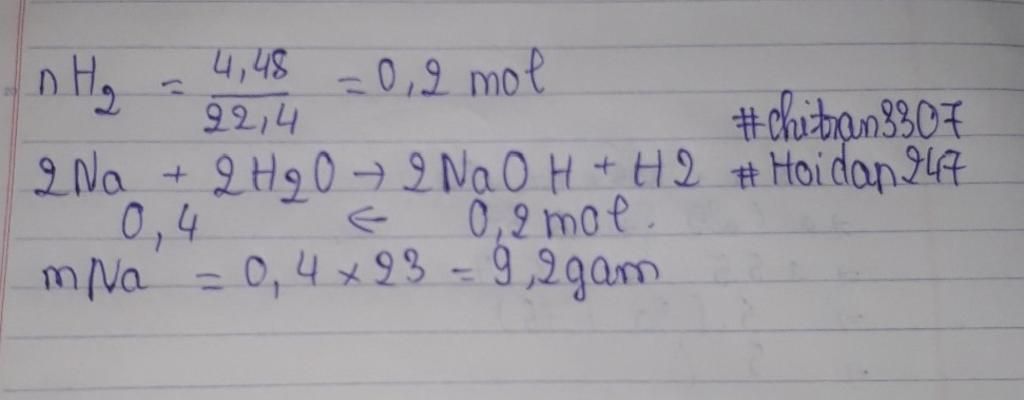 nH2 = 4,48 / 22,4 = 0,2 mol
#chitran3307
2Na + 2H2O → 2NaOH + H2
#Hoidan247
0,4 ← 0,2 mol.
mNa = 0,4 × 23 = 9,2gam